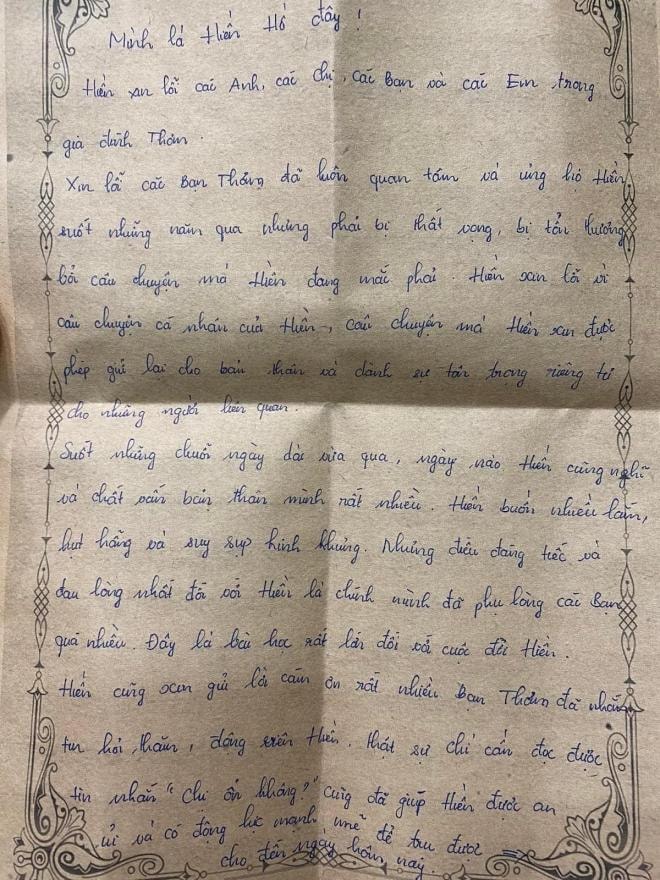 Mình là Hiền Hồ đây!
Hiền xin lỗi các Anh, các chị, các Bạn và các Em trong
gia đình Thơm.
Xin lỗi các Bạn Thơm đã luôn quan tâm và ủng hộ Hiền
suốt những năm qua nhưng phải bị thất vọng, bị tổn thương
bởi câu chuyện mà Hiền đang mắc phải. Hiền xin lỗi vì
câu chuyện cá nhân của Hiền, câu chuyện mà Hiền xin được
phép giữ lại cho bản thân và dành sự tôn trọng riêng tư
cho những người liên quan.
Suốt những chuỗi ngày dài vừa qua, ngày nào Hiền cũng nghĩ
và chất vấn bản thân mình rất nhiều. Hiền buồn nhiều lắm,
hụt hẫng và suy sụp kinh khủng. Nhưng điều đáng tiếc và
đau lòng nhất đối với Hiền là chính mình đã phụ lòng các Bạn
quá nhiều. Đây là bài học rất lớn đối với cuộc đời Hiền.
Hiền cũng xin gửi lời cảm ơn rất nhiều Bạn Thơm đã nhắn
tin hỏi thăm, động viên Hiền. Thật sự chỉ cần đọc được
tin nhắn "Chị ổn không?" cũng đã giúp Hiền được an
ủi và có động lực mạnh mẽ để trụ được
cho đến ngày hôm nay.